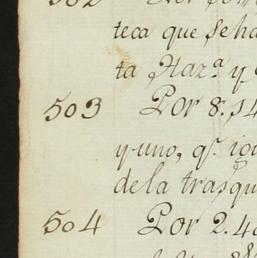 502 Por
teca que se ha
ta Haz.ª y
503 Por 8.
y uno, q.e
de la trasqu
504 Por 2.4